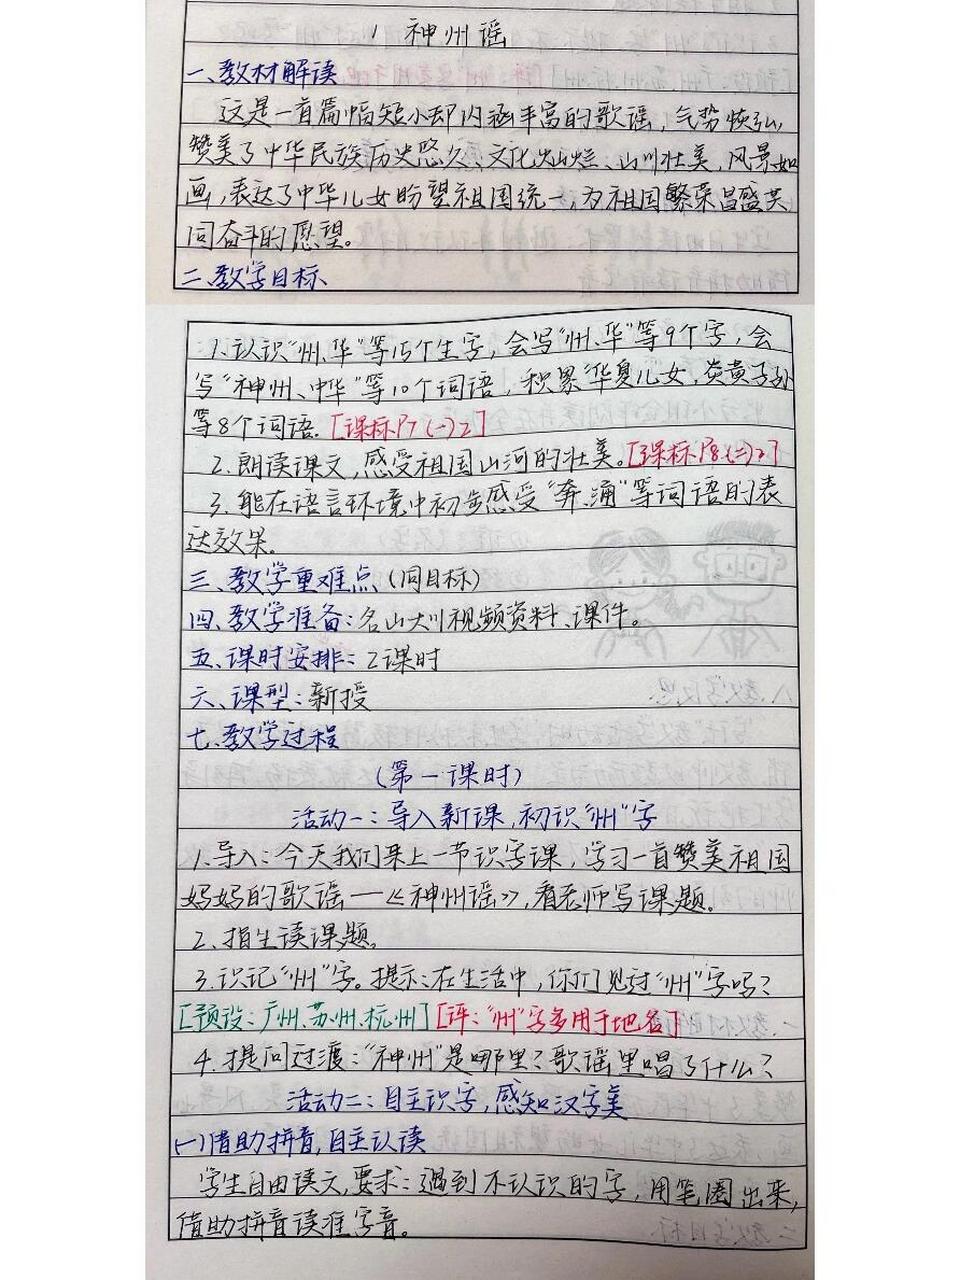 1 神州谣
一、教材解读
这是一首篇幅短小却内涵丰富的歌谣，气势恢弘，
赞美了中华民族历史悠久、文化灿烂、山川壮美，风景如
画，表达了中华儿女盼望祖国统一，为祖国繁荣昌盛共
同奋斗的愿望。
二、教学目标
1.认识“州、华”等15个生字，会写“州、华”等9个字，会
写“神州、中华”等10个词语，积累“华夏儿女，炎黄子孙
等8个词语.[课标P7(一)2]
2.朗读课文，感受祖国山河的壮美。[课标P8.(二)2]
3.能在语言环境中初步感受“奔、涌”等词语的表
达效果。
三、教学重难点(同目标)
四、教学准备：名山大川视频资料、课件。
五、课时安排：2课时
六、课型：新授
七、教学过程
（第一课时）
活动一：导入新课，初识“州”字
1.导入：今天我们来上一节识字课，学习一首赞美祖国
妈妈的歌谣—《神州谣》，看老师写课题。
2.指生读课题。
3.识记“州”字。提示：在生活中，你们见过“州”字吗？
[预设：广州、苏州、杭州][评：“州”字多用于地名]
4.提问过渡：“神州”是哪里？歌谣里唱了什么？
活动二：自主识字，感知汉字美
(一)借助拼音，自主认读
学生自由读文，要求：遇到不认识的字，用笔圈出来，
借助拼音读准字音。